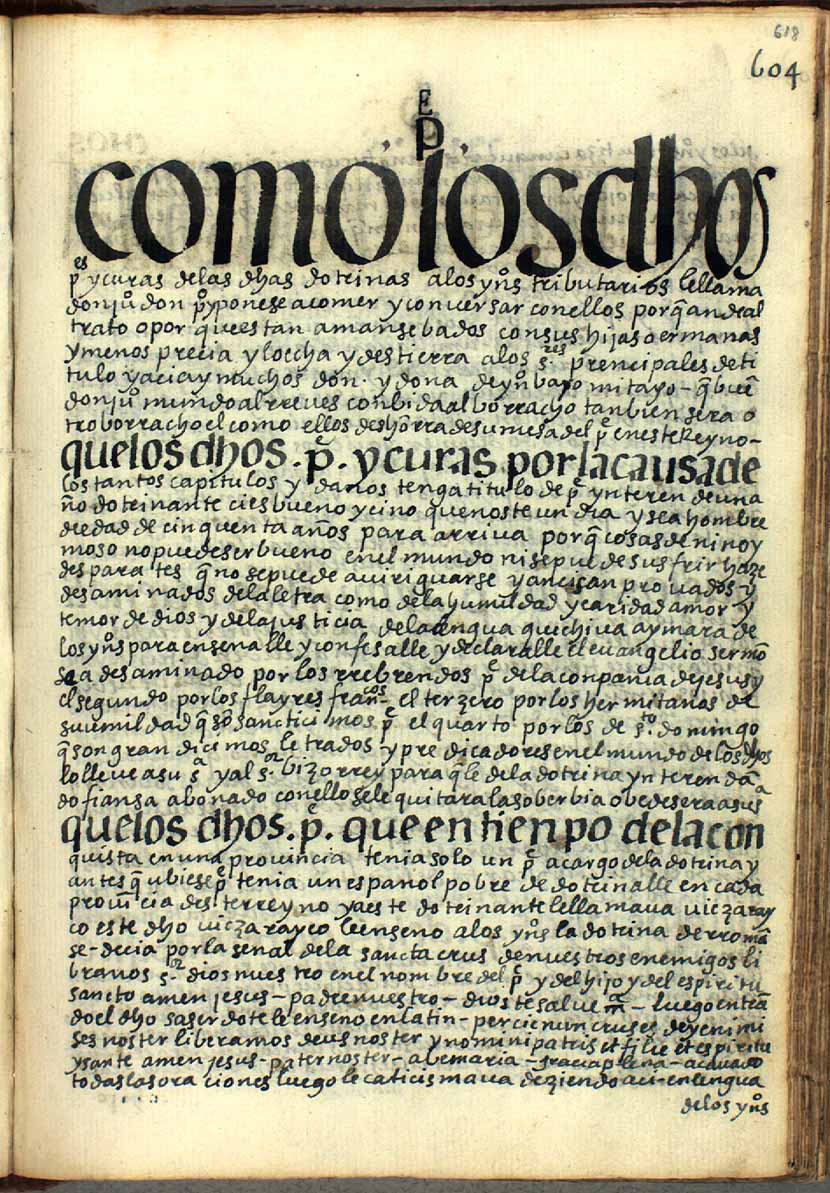 618
604
E
p
como los dhos
pes y curas de las dhas dotrinas a los yns tributarios le llama
don ju don po y ponese a comer y conuersar con ellos por q̃ an de al
trato o por que estan amansebados con sus hijas o ermanas
y menos precia y lo eccha y destierra a los s.res prencipales de ti
tulo y acia y muchos don · y dona de yn baxo mitayo – q̃ buẽ
don ju mundo al rreues conbida al borracho tanbien sera o
tro borracho el como ellos deshõrra de su mesa del p̃ en este rreyno –
que los dhos . p̃ . y curas por la causa de
los tantos capitulos y danos tenga titulo de p̃ ynteren de una
ño dotrinante ci es bueno y cino que no este un dia y sea hombre
de edad de cinquenta años para arriua porq̃ cosas de nino y
moso no puede ser bueno en el mundo ni se pue de sus frir haze
desparates q̃ no se puede aueriguarse y anci san prouados y
desaminados de la letra como de la humildad y caridad amor y
temor de dios y de la justicia de la lengua quichiua aymara de
los yns para ensenalle y confesalle y declaralle el euangelio sermõ
sea desaminado por los rrebrendos p̃ de la conpania de jesus y
el segundo por los flayres francos – el terzero por los hermitanos de
su umildad q̃ sõ sancticimos p̃ el quarto por los de s.to domingo
q̃ son grandicimos letrados y predicadores en el mundo de los dhos
lo lleue a su sa y al s.or bizorrey para q̃ le de la dotrina ynteren dã
do fiansa abonado con ello se le quitara la soberbia obedesera a su sa
que los dhos . p̃ . que en tienpo de la con
quista en una prouincia tenia solo un p̃ a cargo de la dotrina y
antes q̃ ubiese p̃ tenia un español pobre de dotrinalle en cada
prouincia deste rreyno y a este dotrinante le llamaua uiezaray
co este dho uiezarayco le enseno a los yns la dotrina de rromã
se – decia por la senal de la sancta crus de nuestros enemigos li
branos s.or dios nuestro en el nombre del p̃ y del hijo y del espiritu
sancto amen jesus – padre nuestro – dios te salue ma – luego entrã
do el dho saserdote le enseno en latin – percienun cruses deyenimi
ses noster liberamos deus noster y nomini patris et filie et espiritu
ysante amen jesus – pater noster – abemaria – gracia plena – acauado
todas las oraciones luego le caticismaua deziendo aci – en lengua
de los yns